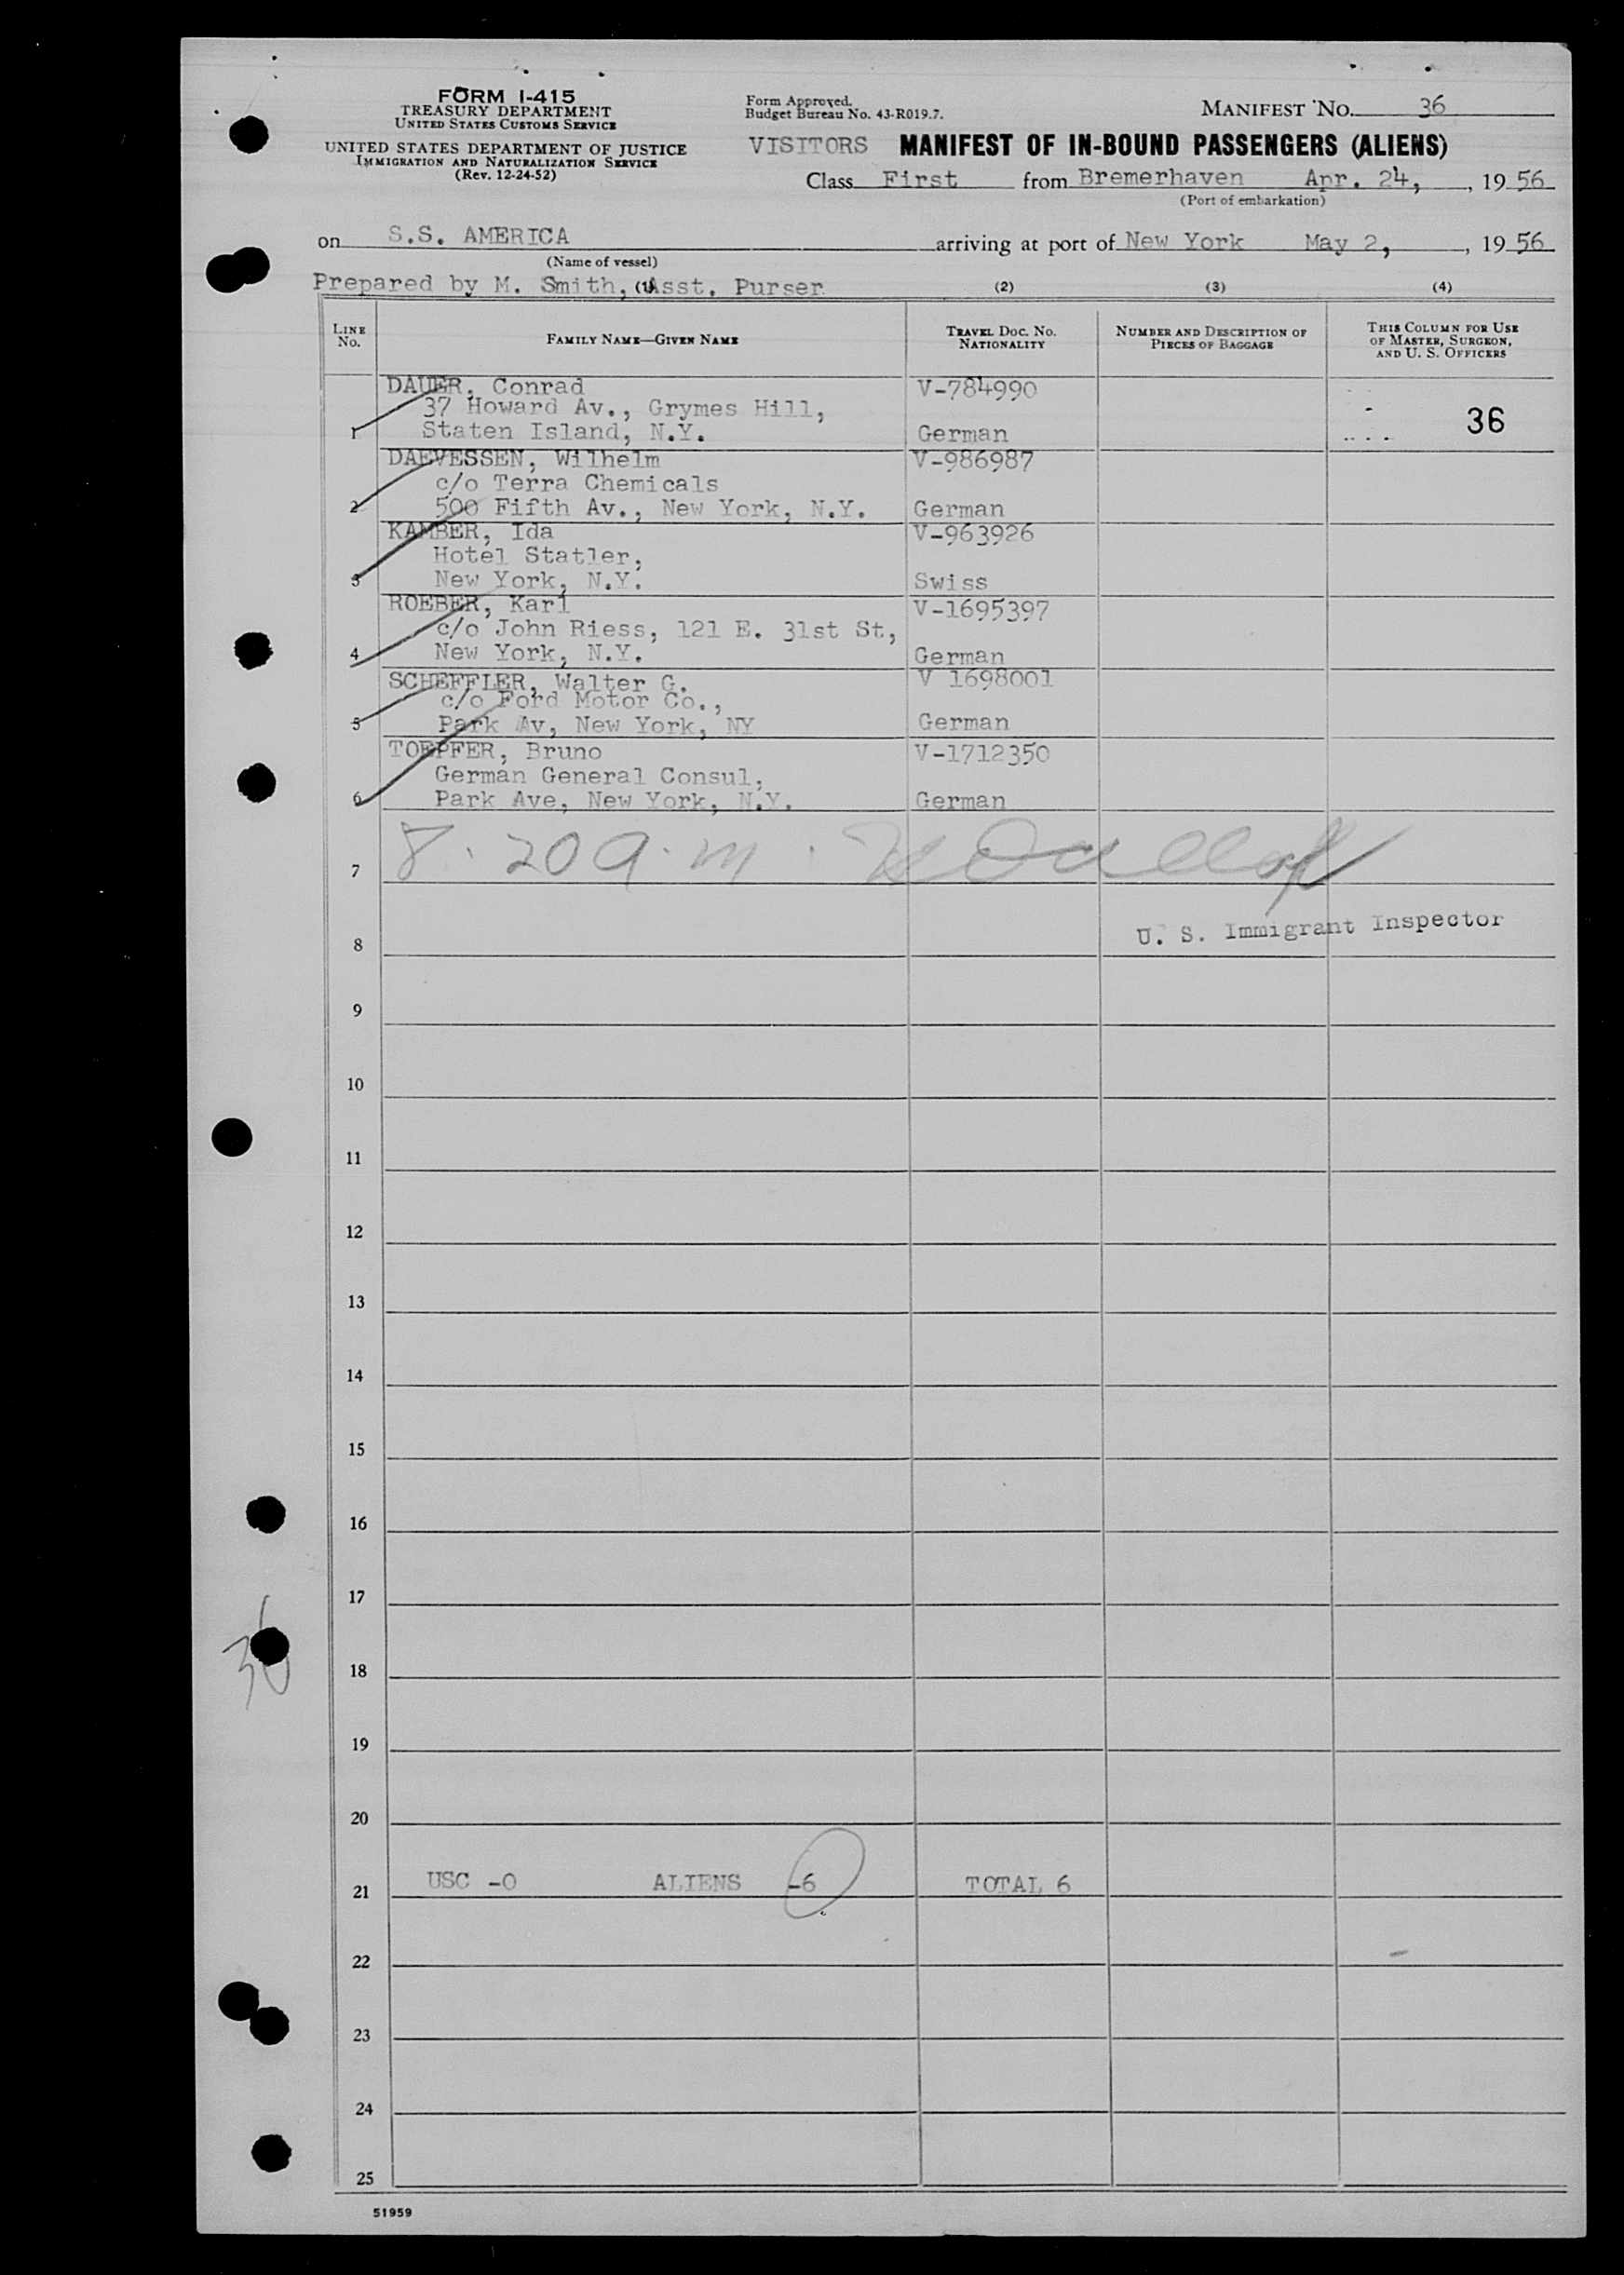 FORM I-415
TREASURY DEPARTMENT
UNITED STATES CUSTOMS SERVICE
UNITED STATES DEPARTMENT OF JUSTICE
IMMIGRATION AND NATURALIZATION SERVICE
(Rev. 12-24-52)
Form Approved.
Budget Bureau No. 43-R019.7.
MANIFEST NO. 36
VISITORS MANIFEST OF IN-BOUND PASSENGERS (ALIENS)
Class First from Bremerhaven Apr. 24, , 19 56
(Port of embarkation)
on S.S. AMERICA arriving at port of New York May 2, , 19 56
(Name of vessel)
Prepared by M. Smith, Asst. Purser (2) (3) (4)
LINE No. FAMILY NAME—GIVEN NAME TRAVEL DOC. NO. NATIONALITY NUMBER AND DESCRIPTION OF PIECES OF BAGGAGE THIS COLUMN FOR USE OF MASTER, SURGEON, AND U. S. OFFICERS
DAUER, Conrad V-784990
37 Howard Av., Grymes Hill, 36
1 Staten Island, N.Y. German
DAEVESSEN, Wilhelm V-986987
c/o Terra Chemicals
2 500 Fifth Av., New York, N.Y. German
KAMBER, Ida V-963926
Hotel Statler,
3 New York, N.Y. Swiss
ROEBER, Karl V-1695397
c/o John Riess, 121 E. 31st St,
4 New York, N.Y. German
SCHEFFLER, Walter G. V 1698001
c/o Ford Motor Co.,
5 Park Av, New York, NY German
TOEPFER, Bruno V-1712350
German General Consul,
6 Park Ave, New York, N.Y. German
8.20 a.m.
7
U. S. Immigrant Inspector
8
9
10
11
12
13
14
15
16
17
36
18
19
20
21 USC -0 ALIENS -6 TOTAL 6
22
23
24
25
51959